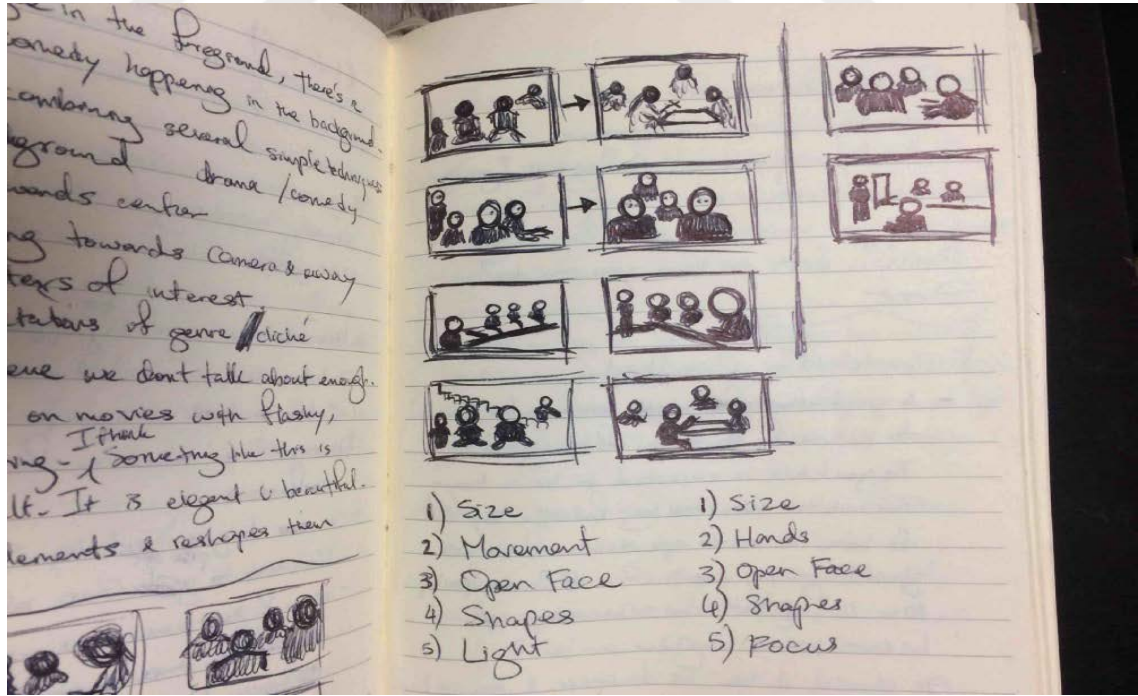 in the foreground, there's a
comedy happening in the background.
combining several simple techniques
drama / comedy
towards camera & away
of interest.
of genre / cliché
we don't talk about enough.
on movies with flashy,
I think
something like this is
It is elegant & beautiful.
elements & reshapes them
1) Size
2) Movement
3) Open Face
4) Shapes
5) Light
1) Size
2) Hands
3) Open Face
4) Shapes
5) Focus